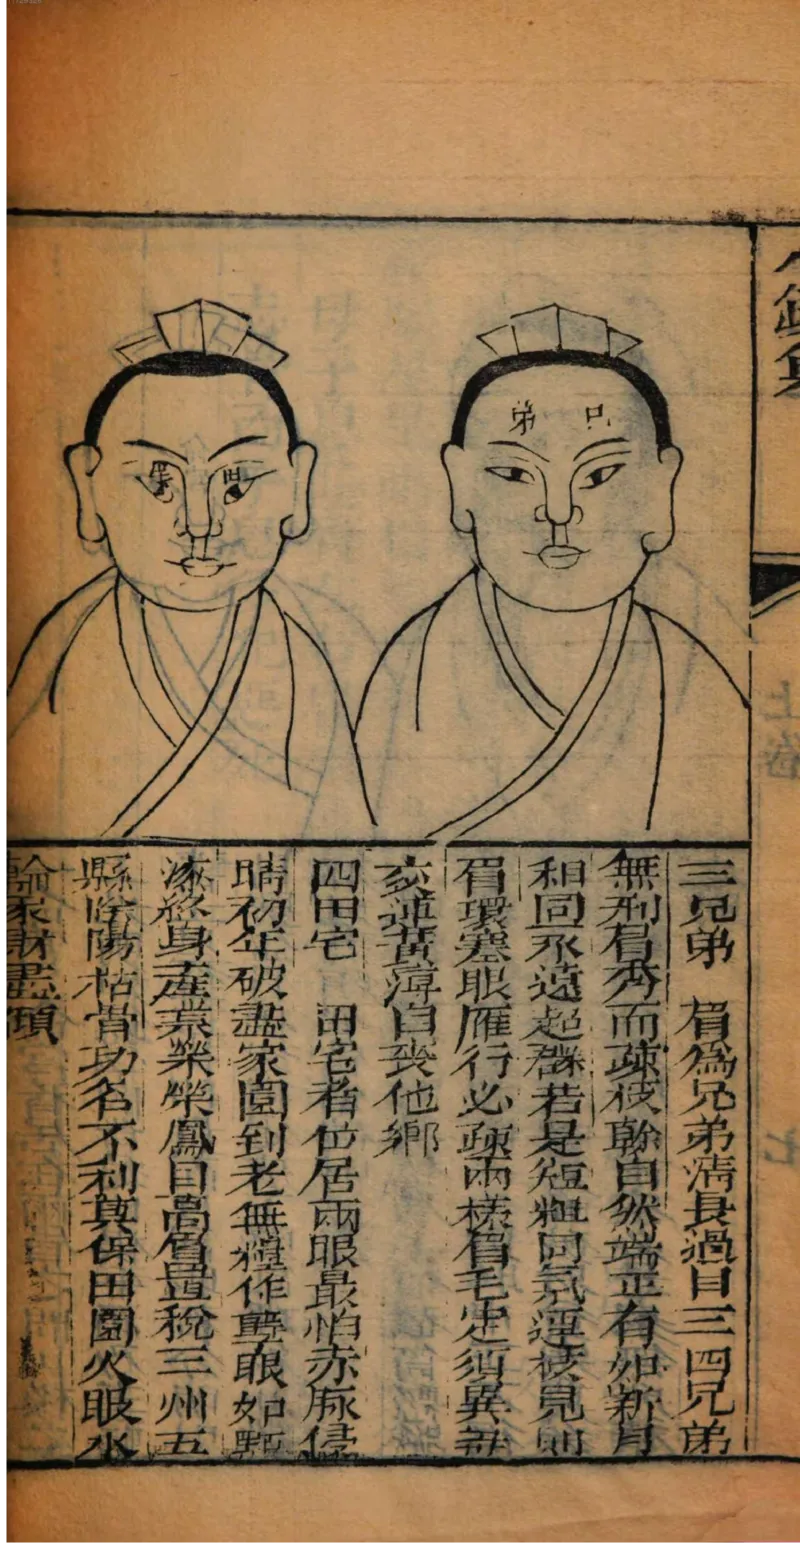 鏡集
上卷
七
兄弟
田宅
三兄弟 眉為兄弟清長過目三四兄弟
無刑眉秀而疎枝幹自然端正有如新月
和同永遠超群若是短粗同氣連枝見別
眉環塞眼雁行必疎兩樣眉毛定須異母
交連黃薄自喪他鄉
四田宅 田宅者位居兩眼最怕赤脉侵
睛初年破盡家園到老無糧作蘖眼如點
漆終身產業榮榮鳳目高眉置稅三州五
縣陰陽枯骨功名不利莫保田園火眼氷
輪家財盡傾